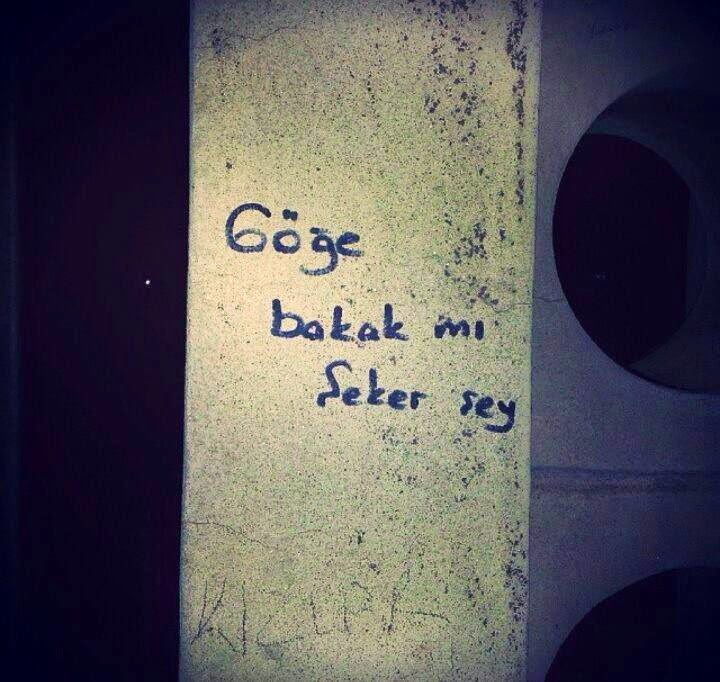 Göğe
bakak mı
Şeker şey